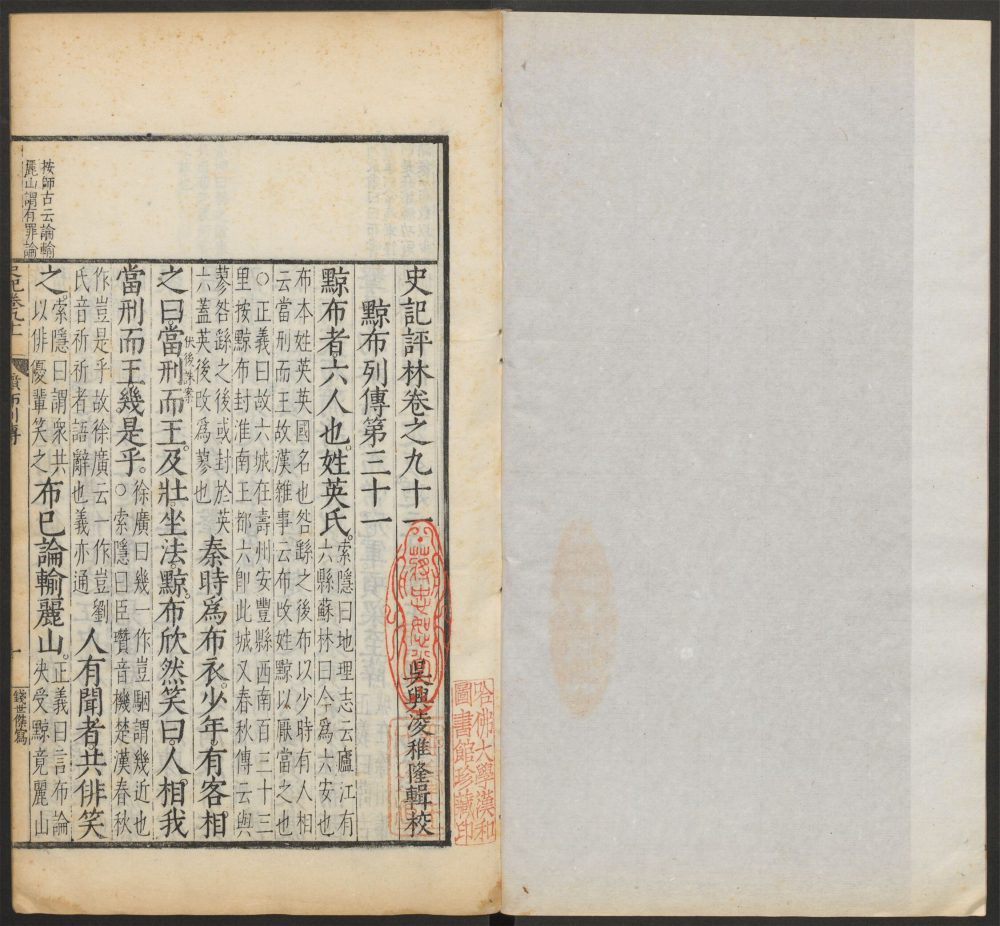 史記評林卷之九十一
吳興凌稚隆輯校
黥布列傳第三十一
黥布者六人也。姓英氏。
索隱曰地理志云廬江有
六縣蘇林曰今爲六安也
布本姓英英國名也咎繇之後布以少時有人相
云當刑而王故漢雜事云布攺姓黥以厭當之也
〇正義曰故六城在壽州安豐縣西南百三十三
里按黥布封淮南王都六卽此城又春秋傳云與
蓼咎繇之後或封於英
六蓋英後攺爲蓼也
秦時爲布衣。少年。有客相
之曰。當刑而王。及壯。坐法黥。布欣然笑曰。人相我
伏後誅案
當刑而王。幾是乎。
徐廣曰幾一作豈駰謂幾近也
〇索隱曰臣瓚音機楚漢春秋
作豈是乎故徐廣云一作豈劉
氏音祈祈者語辭也義亦通
人有聞者。共俳笑
之。
索隱曰謂衆共
以俳優輩笑之
布已論輸麗山。
正義曰言布論
決受黥竟麗山
按師古云論輸
麗山謂有罪論
史記卷九十一
黥布列傳
一
錢世傑寫
哈佛大學漢和
圖書館珍藏印